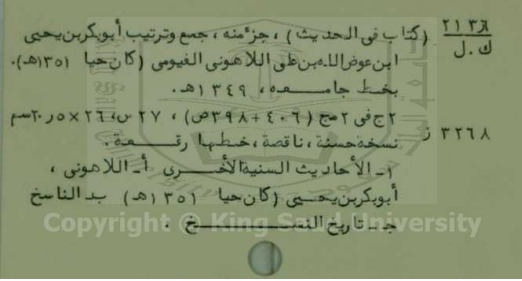 ٢١٣٫٢ (كتاب فى الحديث) ، جزء منه ، جمع وترتيب أبو بكر بن يحيى
ك . ل ابن عوض الله بن على اللاهونى الفيومى (كان حيا ١٣٥١هـ) .
بخط جامعه ، ١٣٤٩هـ .
٢ج فى ٢مج (٤٠٦+٣٩٨ص) ، ٢٧س ، ٢٦×٢٠٫٥سم
٣٢٦٨ ز نسخة حسنة ، ناقصة ، خطها رقعة .
١ـ الأحاديث السنية الأخرى أ ـ اللاهونى ،
أبو بكر بن يحيى (كان حيا ١٣٥١هـ) بـ الناسخ
جـ تاريخ النسخ .
Copyright © King Saud University